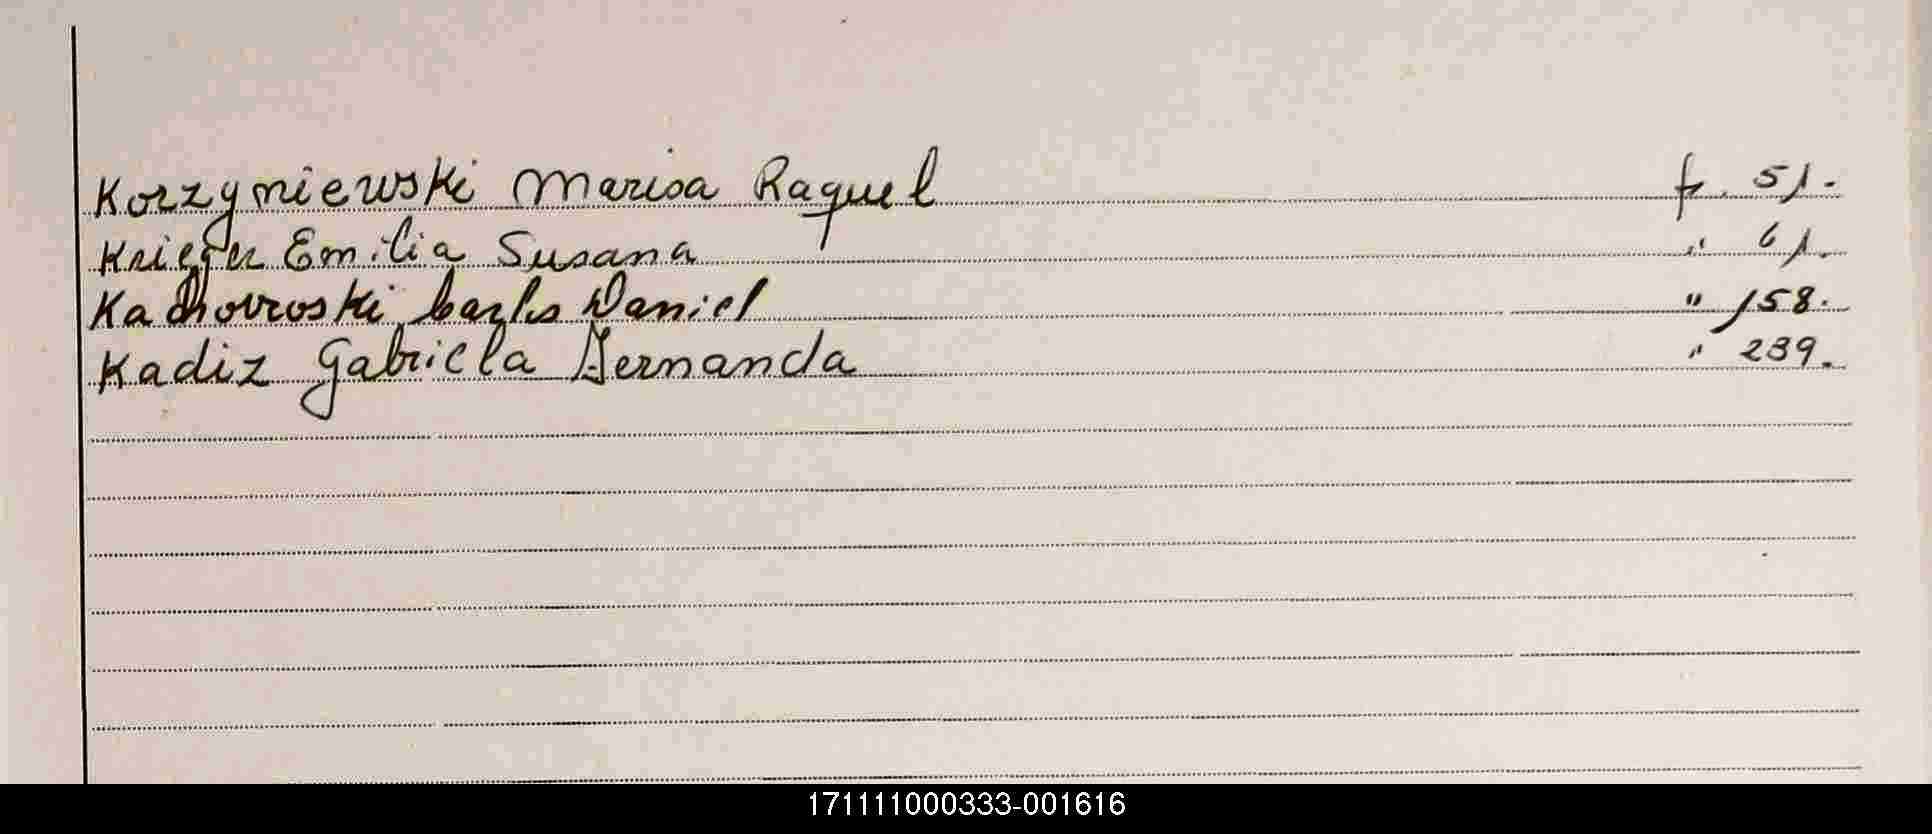 Korzyniewski Marisa Raquel f. 51.
Krieger Emilia Susana " 61.
Carlos Daniel " 158.
Kadiz Gabriela Fernanda " 239.
171111000333-001616